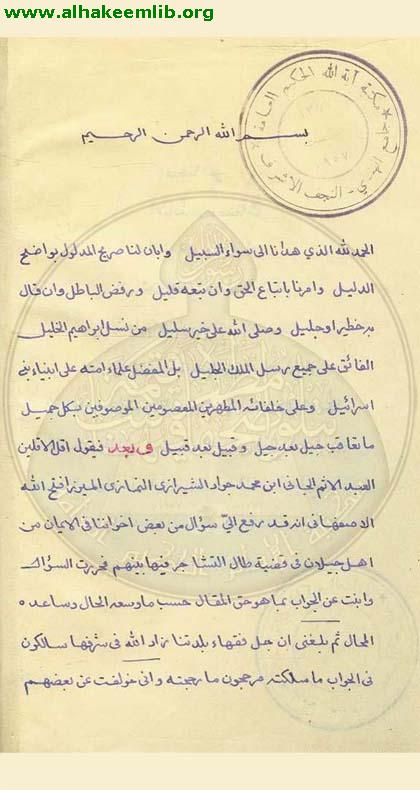 www.alhakeemlib.org
مكتبة آية الله الحكيم العامة
النجف الاشرف
بسم الله الرحمن الرحيم
الحمد لله الذي هدانا الى سواء السبيل وابان لنا صريح المدلول بواضح
الدليل وامرنا باتباع الحق وان تبعه قليل ورفض الباطل وان قال
به خطير او جليل وصلى الله على خير سليل من نسل ابراهيم الخليل
الفائق على جميع رسل الملك الجليل بل المفضل علماء امته على انبياء بني
اسرائيل وعلى خلفائه المطهرين المعصومين الموصوفين بكل جميل
ما تعاقب جيل بعد جيل وقبيل بعد قبيل وبعد فيقول اقل الاقلين
العبد الاثم الجاني ابن محمد جواد الشيرازي
الاصفهاني انه قد رفع اليّ سؤال من بعض اخواننا في الايمان من
اهل جيلان في قضية طال التشاجر فيها بينهم فحررت السؤال
وابنت عن الجواب بما هو حق المقال حسب ما وسعه الحال وساعده
المجال ثم بلغني ان جل فقهاء بلدتنا زاد الله في شرفها سالكون
في الجواب ما سلكته مرجحون ما رجحته واني خولفت عن بعضهم